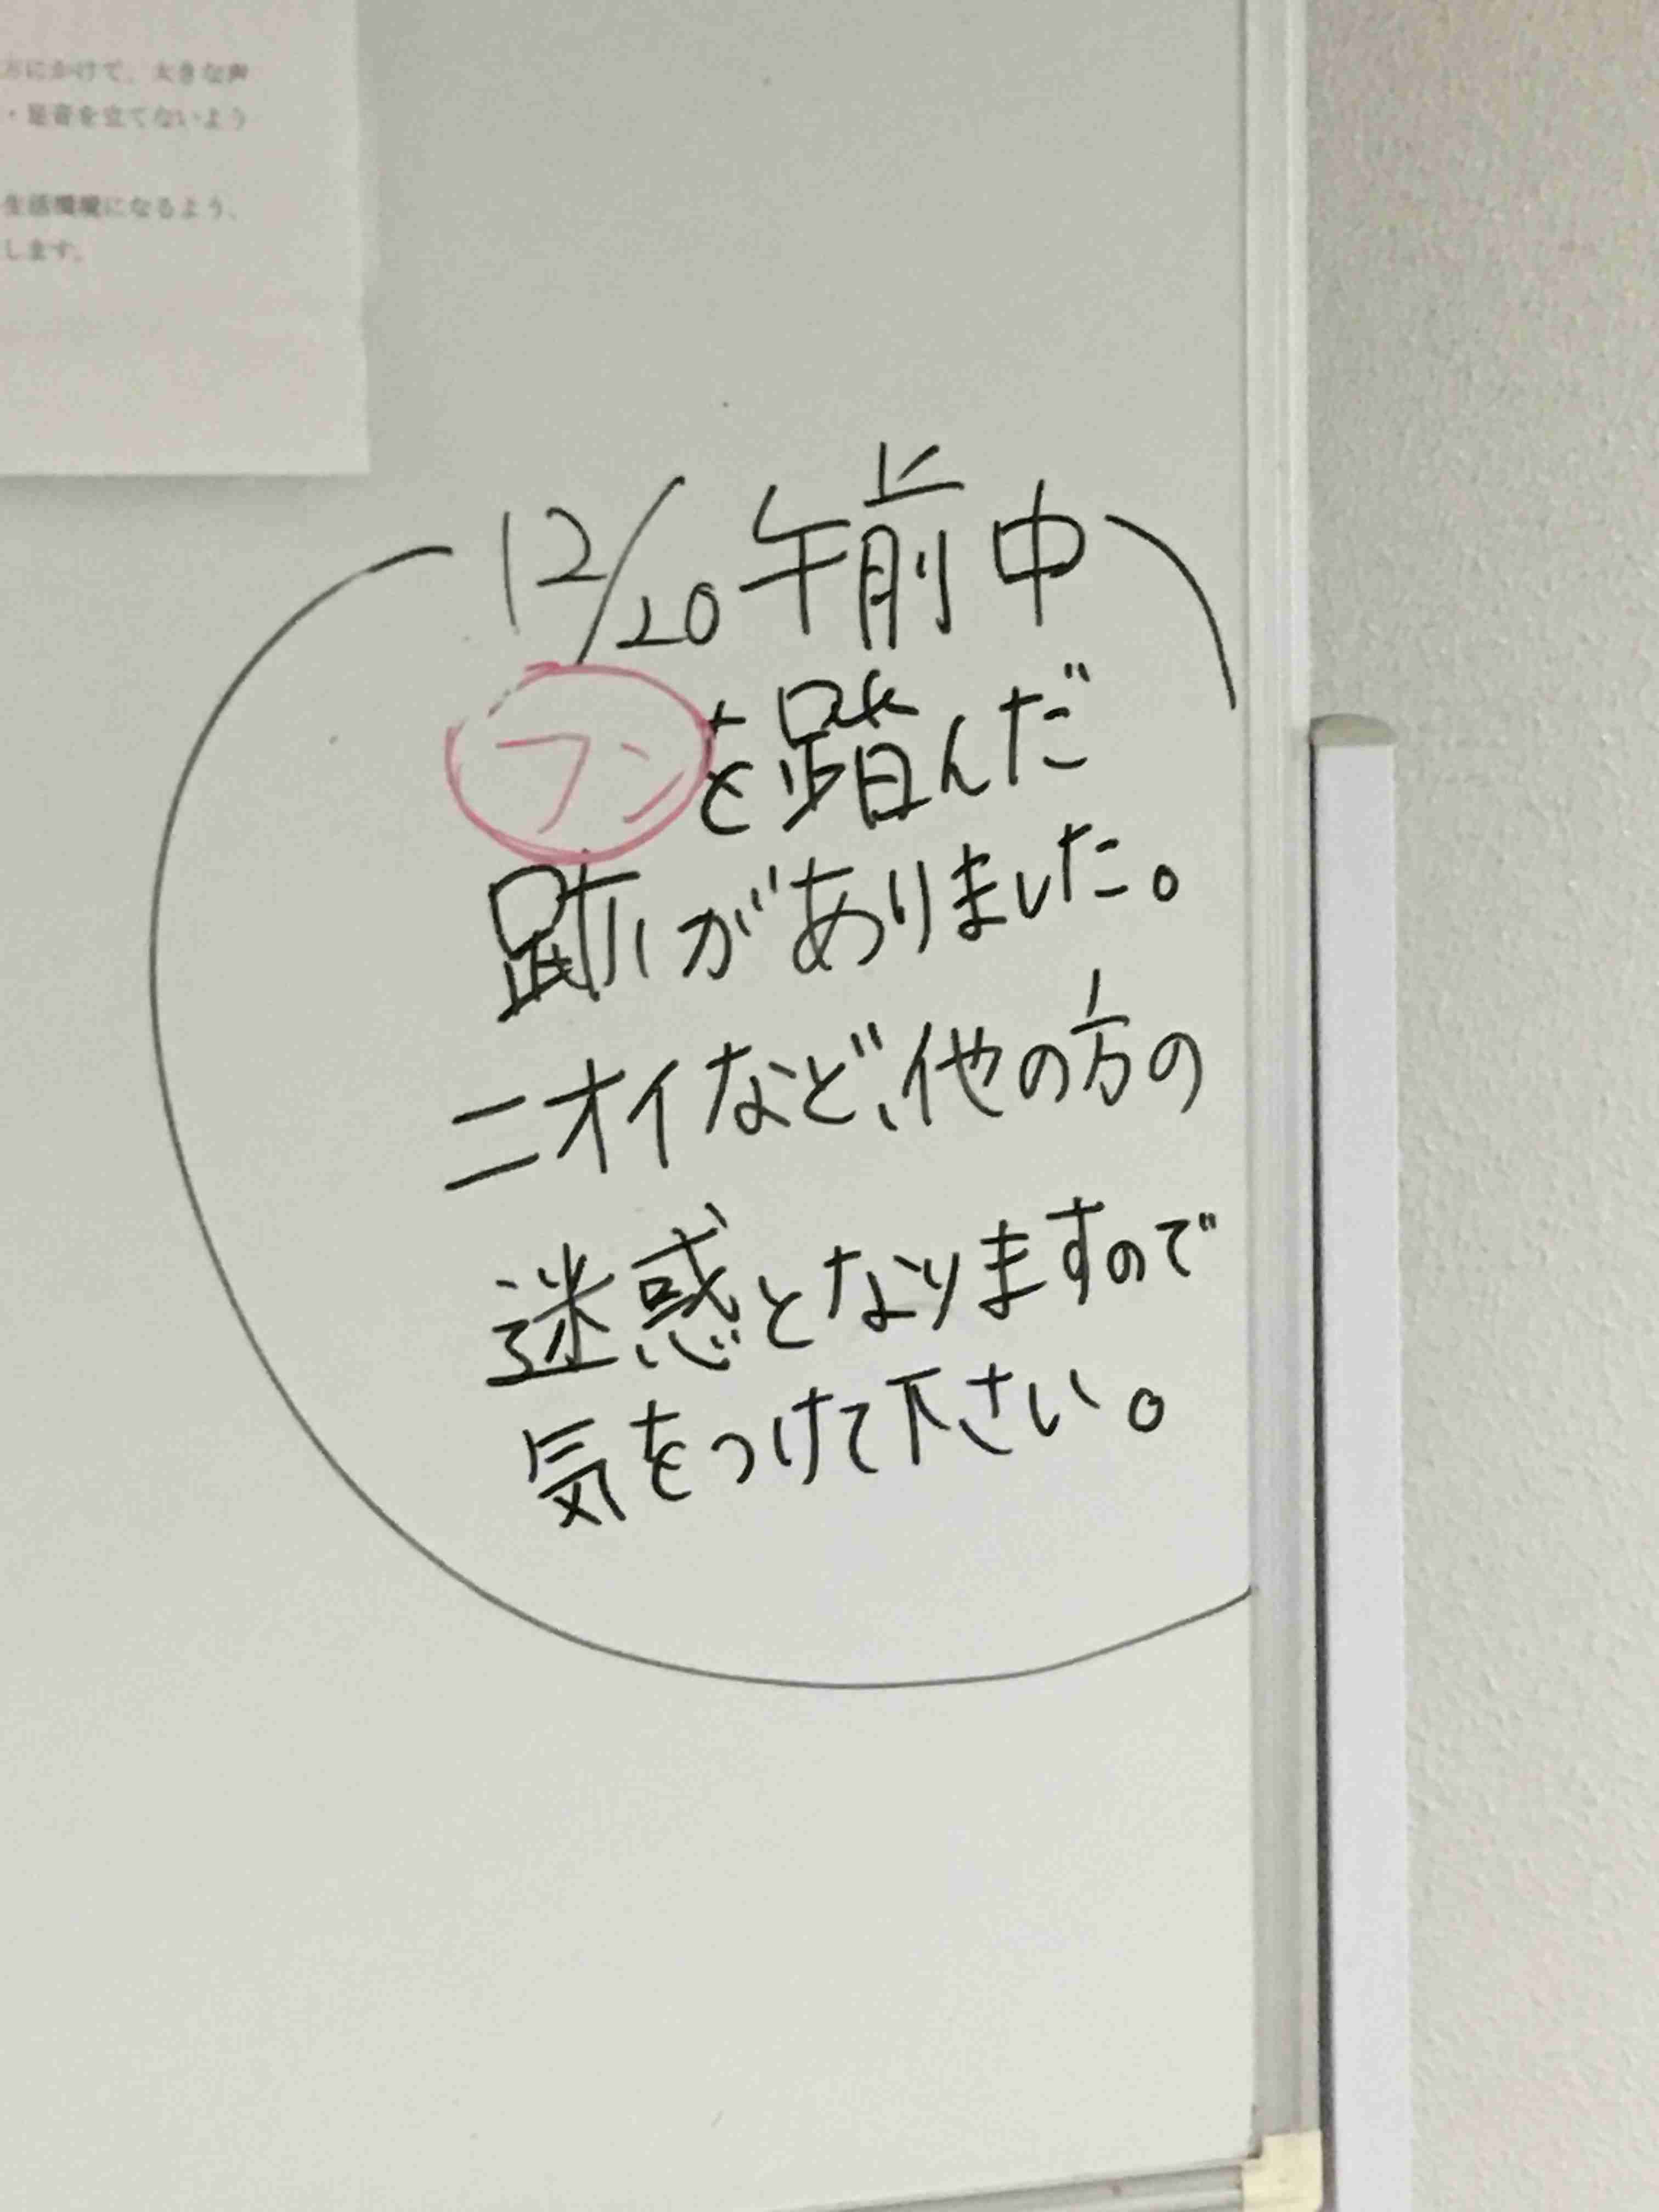 方にかけて、大きな声
・足音を立てないよう
生活環境になるよう、
します。
12/20 午前中
フンを踏んだ
跡がありました。
ニオイなど、他の方の
迷惑となりますので
気をつけて下さい。